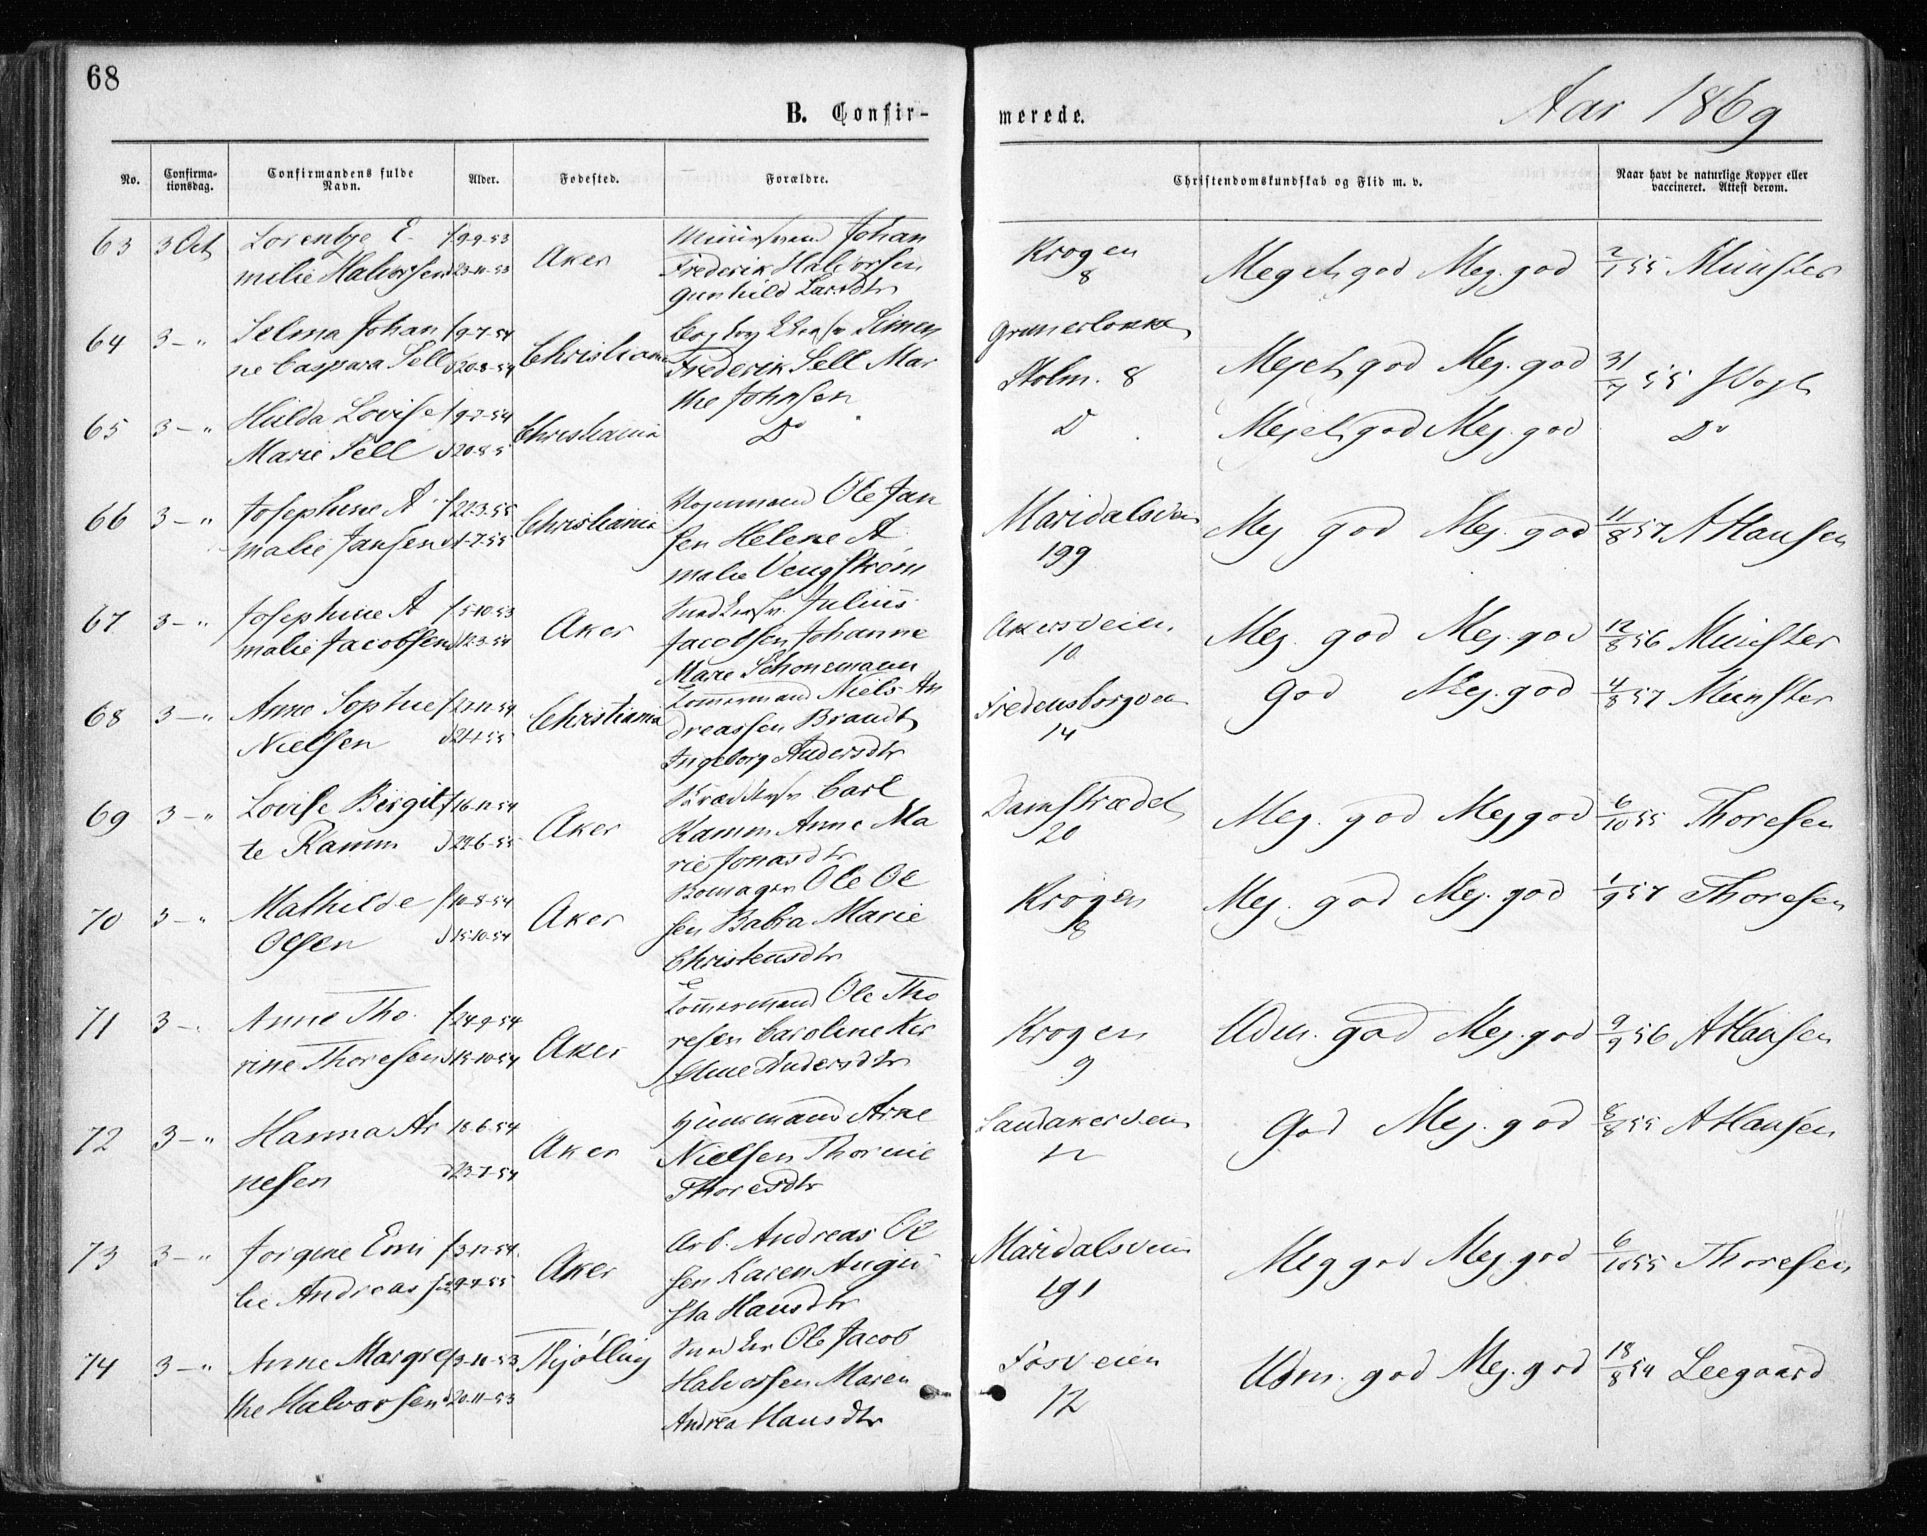 68
B. Confir-
merede.
Aar 1869
No.
Confirma-
tionsdag.
Confirmandens fulde
Navn.
Alder.
Fødested.
Forældre.
Christendomskundskab og Flid m. v.
Naar havt de naturlige Kopper eller
vaccineret. Attest derom.
63 3 Oct Lorentze E. f 9-9-53 Aker Muursvend Johan Krogen Meget god Meg. god 2/1 55 Münster
milie Halvorsen d 23-10-53 Frederik Halvorsen 8
Gunhild Larsdtr
64 3 - " Selma Johan f 9-7-54 Christiania Simen Grunerløkke Meget god Meg. god 31/7 55 Vogt
ne Caspara Sell d 20-8-54 Frederik Sell Mar Holm. 8
the Johnsen
65 3 - " Hulda Lovise f 9-7-54 Christiania Do D Meget god Meg. god Do
Marie Sell d 20-8-5
66 3 - " Josephine A f 22-3-55 Christiania Ole Jan Maridalsvei Meg god Meg. god 11/8 57 A Hansen
malie Jansen d 1-7-55 sen Helene A 199
malie Vengstrøm
67 3 - " Josephine A f 5-10-53 Aker Julius Akersveien Meg. god Meg. god 12/8 56 Münster
malie Jacobsen d 12-3-54 Jacobsen Johanne 10
Marie Schonemann
68 3 - " Anne Sophie f Christiania Tømmermand Niels An Fredensborgvei God Meg. god 4/8 57 Münster
Nielsen d 21-1-55 dreassen Brandt 14
Ingeborg Andersdtr
69 3 - " Lovise Birgit f 16-11-54 Aker Carl Damstrædet Meg. god Meg god 6/10 55 Thoresen
te Ramm d 24-6-55 Ramm Anne Ma 20
rie Jonasdtr
70 3 - " Mathilde f 10-8-54 Aker Ole Ol Krogen Meg. god Meg. god 1/9 57 Thoresen
Olsen d 15-10-54 sen Babra Marie 8
Christensdtr
71 3 - " Anne Tho f 24-9-54 Aker Tømmermand Ole Tho Krogen Udm. god Meg. god 9/9 56 A Hansen
rine Thoresen d 15-10-54 resen Caroline Kir 9
stine Andersdtr
72 3 - " Hanna Ar 18-6-54 Aker Huusmand Arne Sandakerveien God Meg. god 8/8 55 A Hansen
nesen d 23-7-54 Nielsen Thorine
Thoresdtr
73 3 - " Jørgine Emi f 3-12-54 Aker Arb. Andreas Ol Maridalsveien Meg god Meg. god 6/10 55 Thoresen
lie Andreas 9-4-55 sen Karen Augu 191
sta Hansdtr
74 3 - " Anne Margre f 3-11-53 Thjølling Snedker Ole Jacob Fosveien Udm. god Meg. god 18/8 54 Leegaard
the Halvorsen d 20-11-53 Halvorsen Maren 12
Andrea Hansdtr